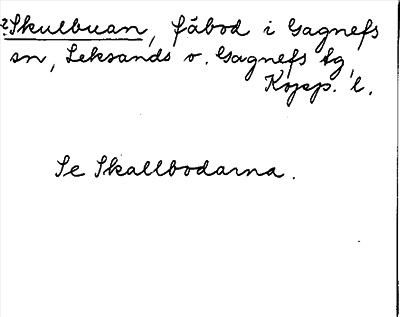 Skulbuan, fäbod i Gagnefs
sn, Leksands o. Gagnefs tg,
Kopp. l.
Se Skallbodarna.